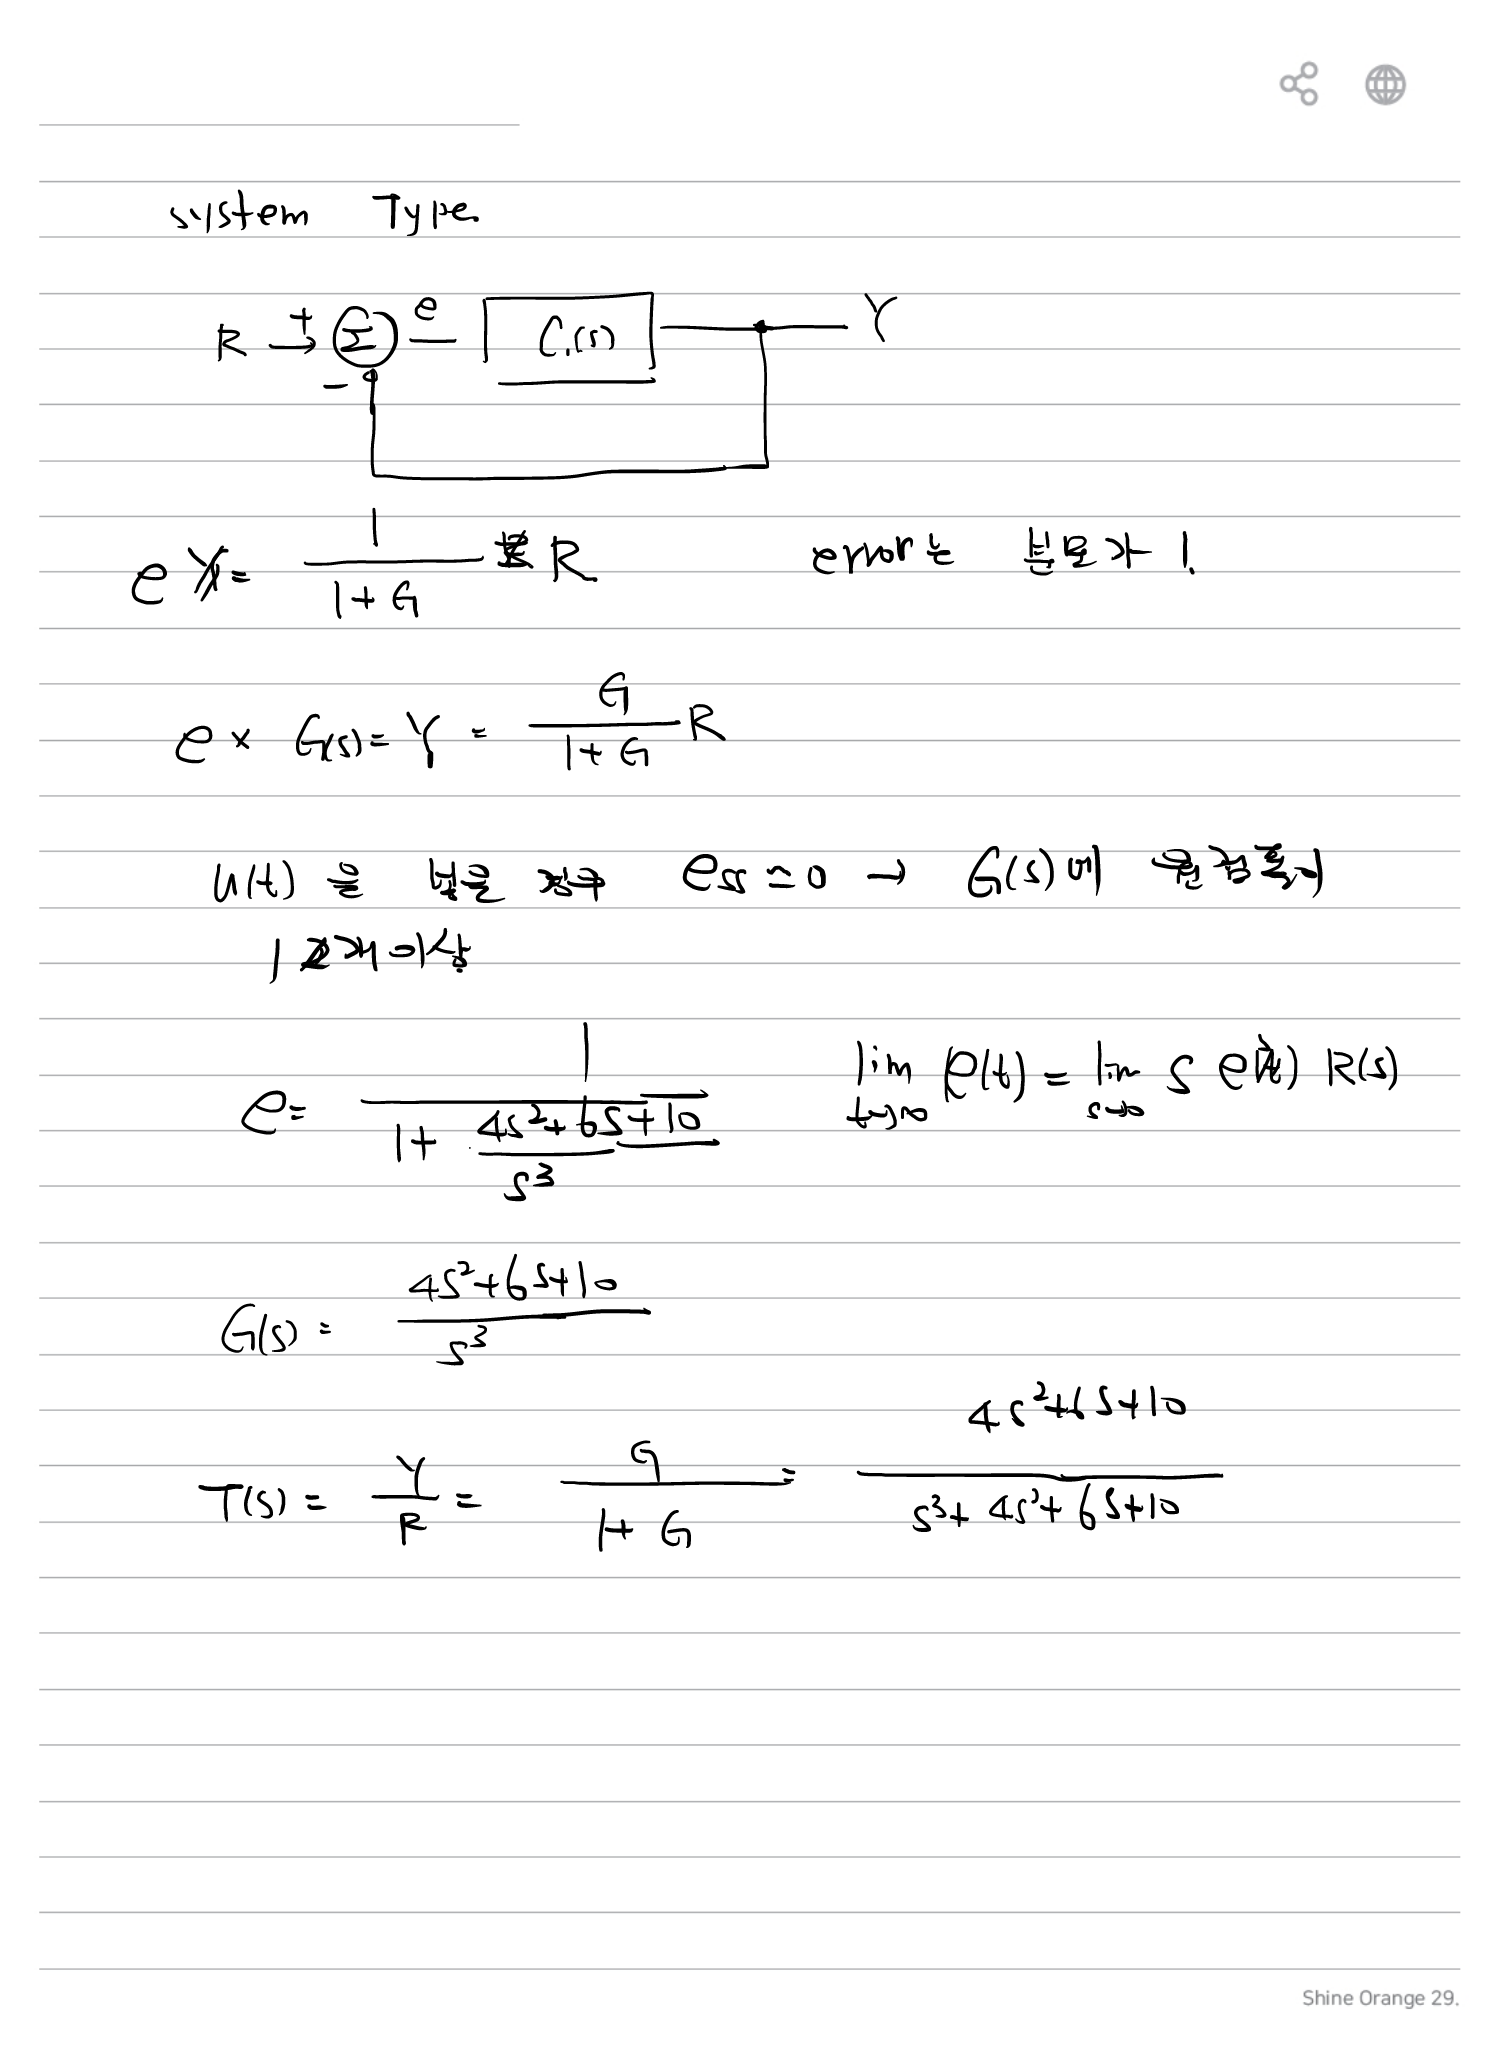 system Type
R + Σ e G(s) Y
-
e = 1/(1+G) R error는 분모가 1.
e × G(s) = Y = G/(1+G) R
u(t)을 넣을 경우 ess = 0 → G(s)에 원점
1 개 이상
e = 1/(1 + (4s²+6s+10)/s³) lim t→∞ e(t) = lim s→0 s e R(s)
G(s) = (4s²+6s+10)/s³
T(s) = Y/R = G/(1+G) = (4s²+6s+10)/(s³+4s²+6s+10)
Shine Orange 29.